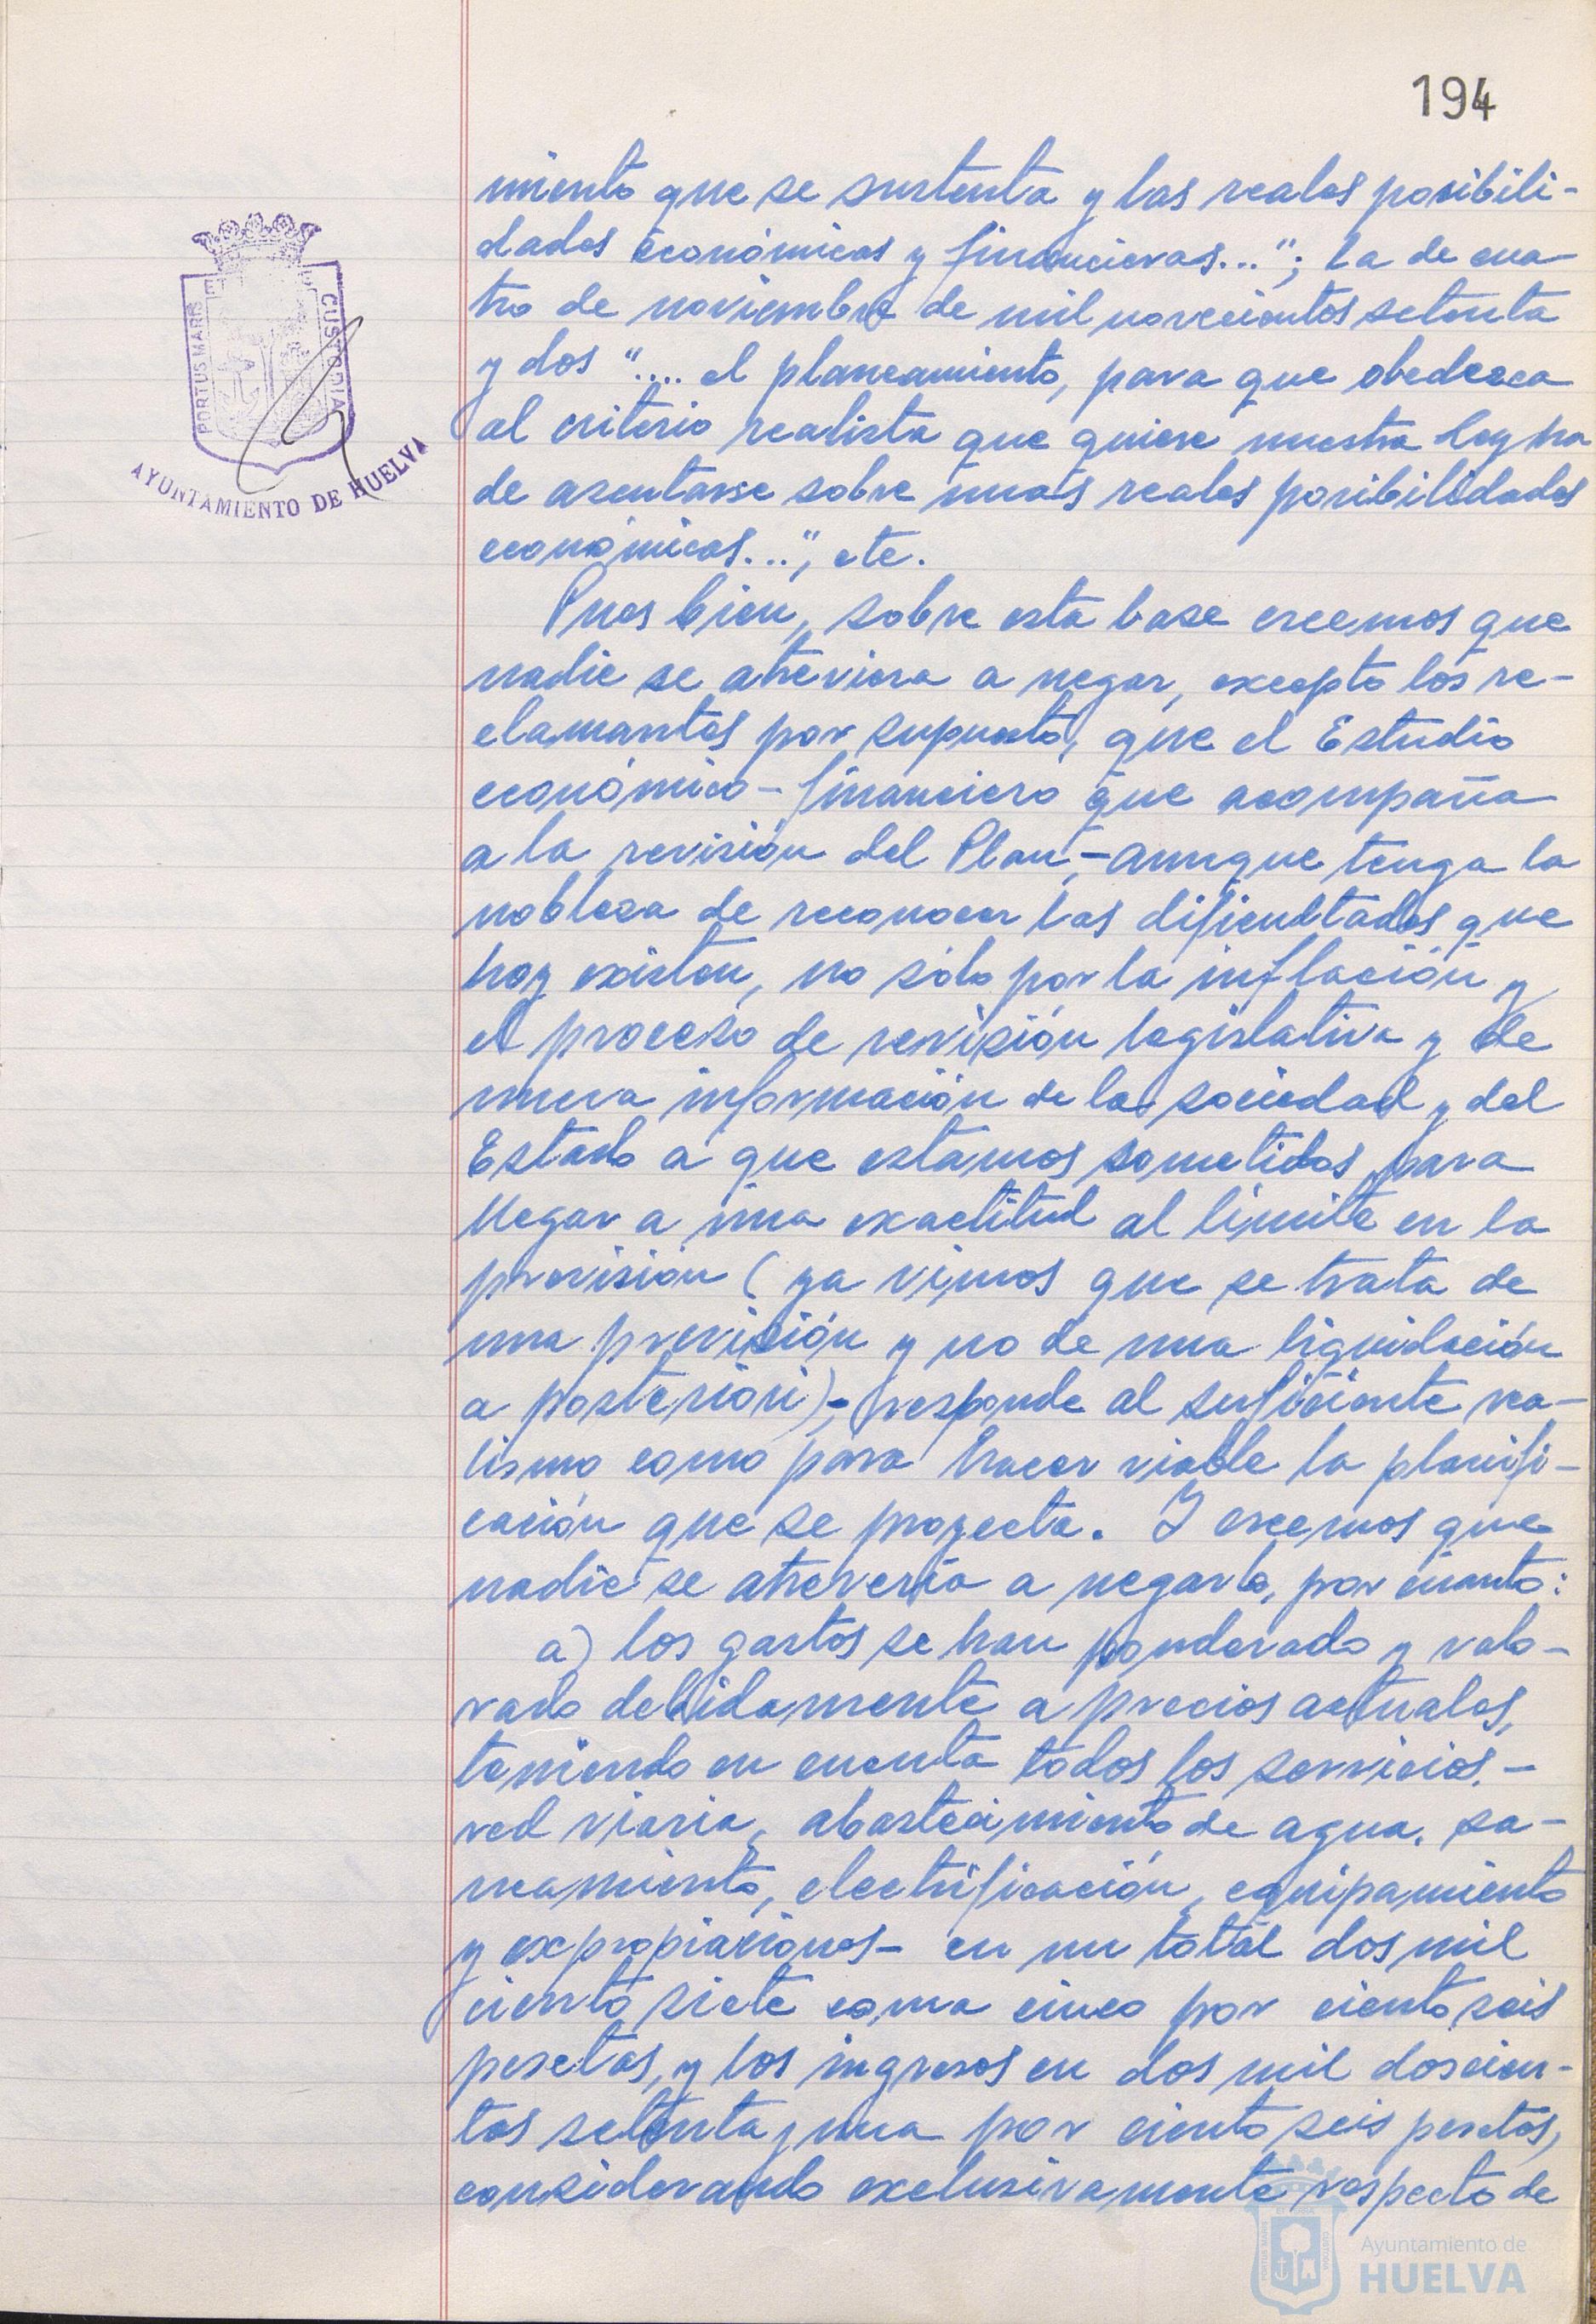 194
PORTUS MARIS ET CUSTODIA
AYUNTAMIENTO DE HUELVA
miento que se sustenta y las reales posibili-
dades económicas y financieras..."; La de cua-
tro de noviembre de mil novecientos setenta
y dos ".... el planeamiento, para que obedezca
al criterio realista que quiere nuestra ley ha
de asentarse sobre unas reales posibilidades
económicas...", etc.
Pues bien, sobre esta base creemos que
nadie se atreviera a negar, excepto los re-
clamantes por supuesto, que el Estudio
económico-financiero que acompaña
a la revisión del Plan,- aunque tenga la
nobleza de reconocer las dificultades que
hoy existen, no sólo por la inflación y
el proceso de revisión legislativa y de
nueva información de la sociedad y del
Estado a que estamos sometidos para
llegar a una exactitud al límite en la
previsión (ya vimos que se trata de
una previsión y no de una liquidación
a posteriori),- responde al suficiente rea-
lismo como para hacer viable la planifi-
cación que se proyecta. Y creemos que
nadie se atrevería a negarlo, por cuanto:
a) los gastos se han ponderado y valo-
rado debidamente a precios actuales,
teniendo en cuenta todos los servicios.-
red viaria, abastecimiento de agua, sa-
neamiento, electrificación, equipamiento
y expropiaciones- en un total dos mil
ciento siete coma cinco por ciento seis
pesetas, y los ingresos en dos mil doscien-
tos setenta y una por ciento seis pesetas,
considerando exclusivamente respecto de
Ayuntamiento de
HUELVA